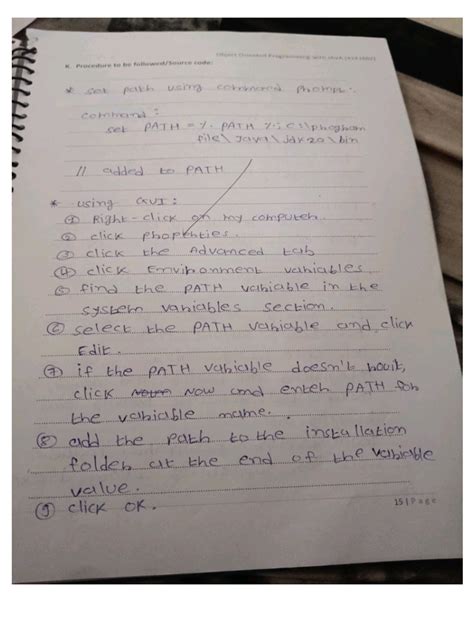 Object Oriented Programming with JAVA
K. Procedure to be followed/Source code:
* set path using command prompt:
command:
set PATH = %. PATH %; C:\program
file\Java\jdk20\bin
// added to PATH
* using GUI:
① Right-click on my computer.
② click properties.
③ click the Advanced tab
④ click Environment variables.
⑤ find the PATH variable in the
system variables section.
⑥ select the PATH variable and click
Edit.
⑦ if the PATH variable doesn't
click Now and enter PATH for
the variable name.
⑧ add the path to the installation
folder at the end of the variable
value.
⑨ click OK.
15 | P a g e